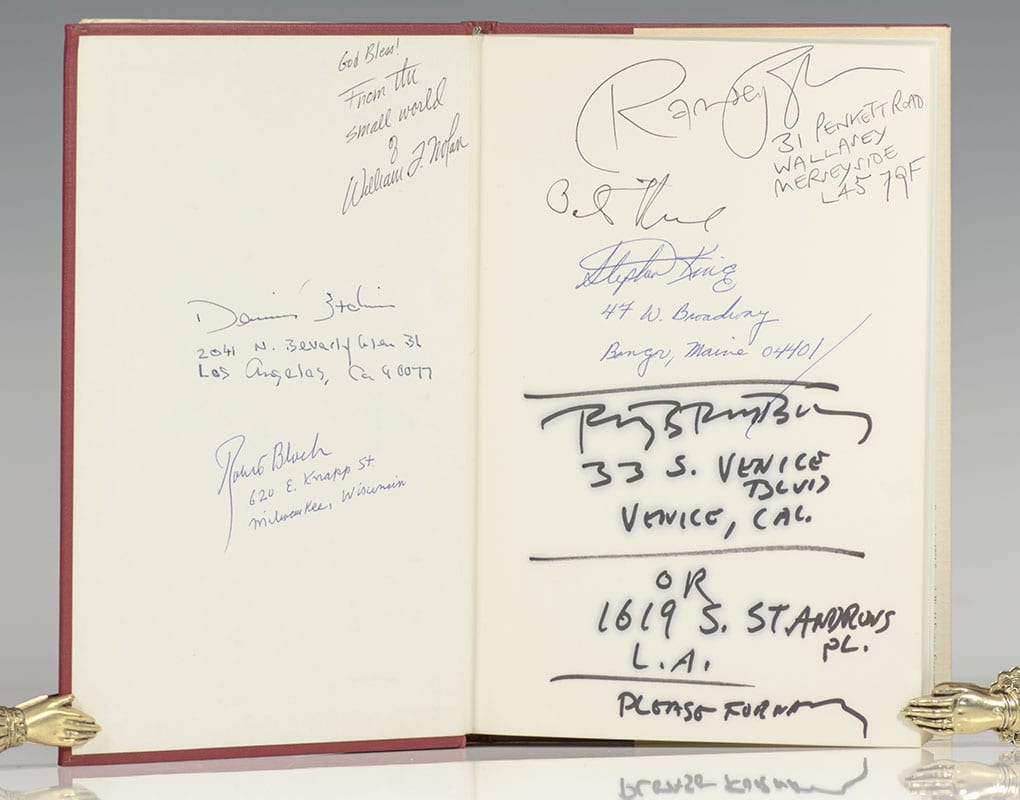 God Bless!
From the
small world
of
William F. Nolan
Dennis Etchison
2041 N. Beverly Glen Bl
Los Angeles, Ca 90077
Robert Bloch
620 E. Knapp St.
Milwaukee, Wisconsin
Ramsey
31 PENKETT ROAD
WALLASEY
MERSEYSIDE
L45 7QF
Stephen King
47 W. Broadway
Bangor, Maine 04401
Ray Bradbury
33 S. VENICE
BLVD
VENICE, CAL.
OR
1619 S. ST. ANDREWS
PL.
L.A.
PLEASE FORWARD